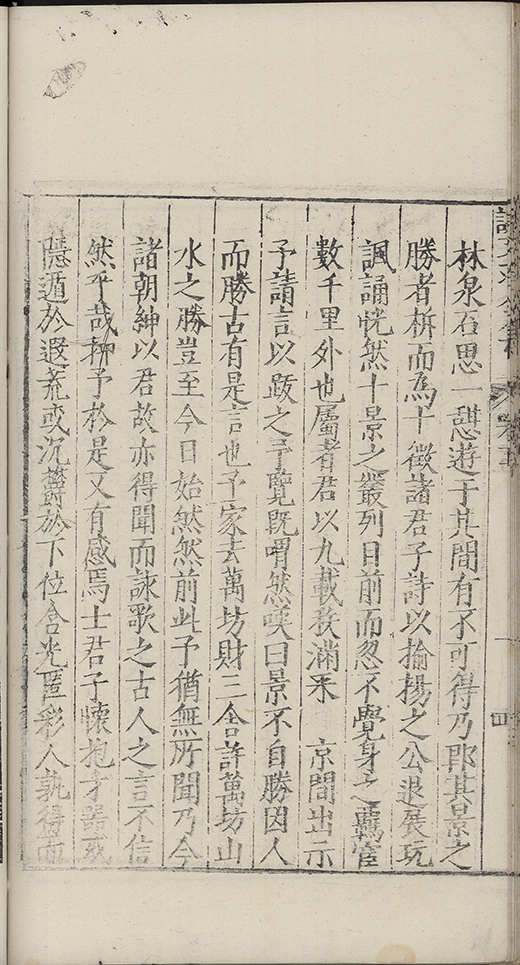 林泉石思一憇遊于其間有不可得乃即其景之
勝者析而為十徵諸君子詩以揄揚之公退展玩
諷誦恍然十景之叢列目前而忽不覺身之羈宦
數千里外也屬者君以九載秩滿来 京間出示
予請言以䟦之予覽既喟然嘆曰景不自勝因人
而勝古有是言也予家去萬坊財三舍許萬坊山
水之勝豈至今日始然然前此予猶無所聞乃今
諸朝紳以君故亦得聞而詠歌之古人之言不信
然乎哉抑予於是又有感焉士君子懷抱才器或
隱遁於遐荒或沉欝於下位含光匿彩人孰得而
四